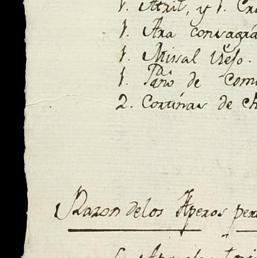 1. Atril, y 1. Cr
1. Ara consagra
1. Misal viejo.
1. Paño de Com
2. Cortinas de ch
Razon de los Aperos per